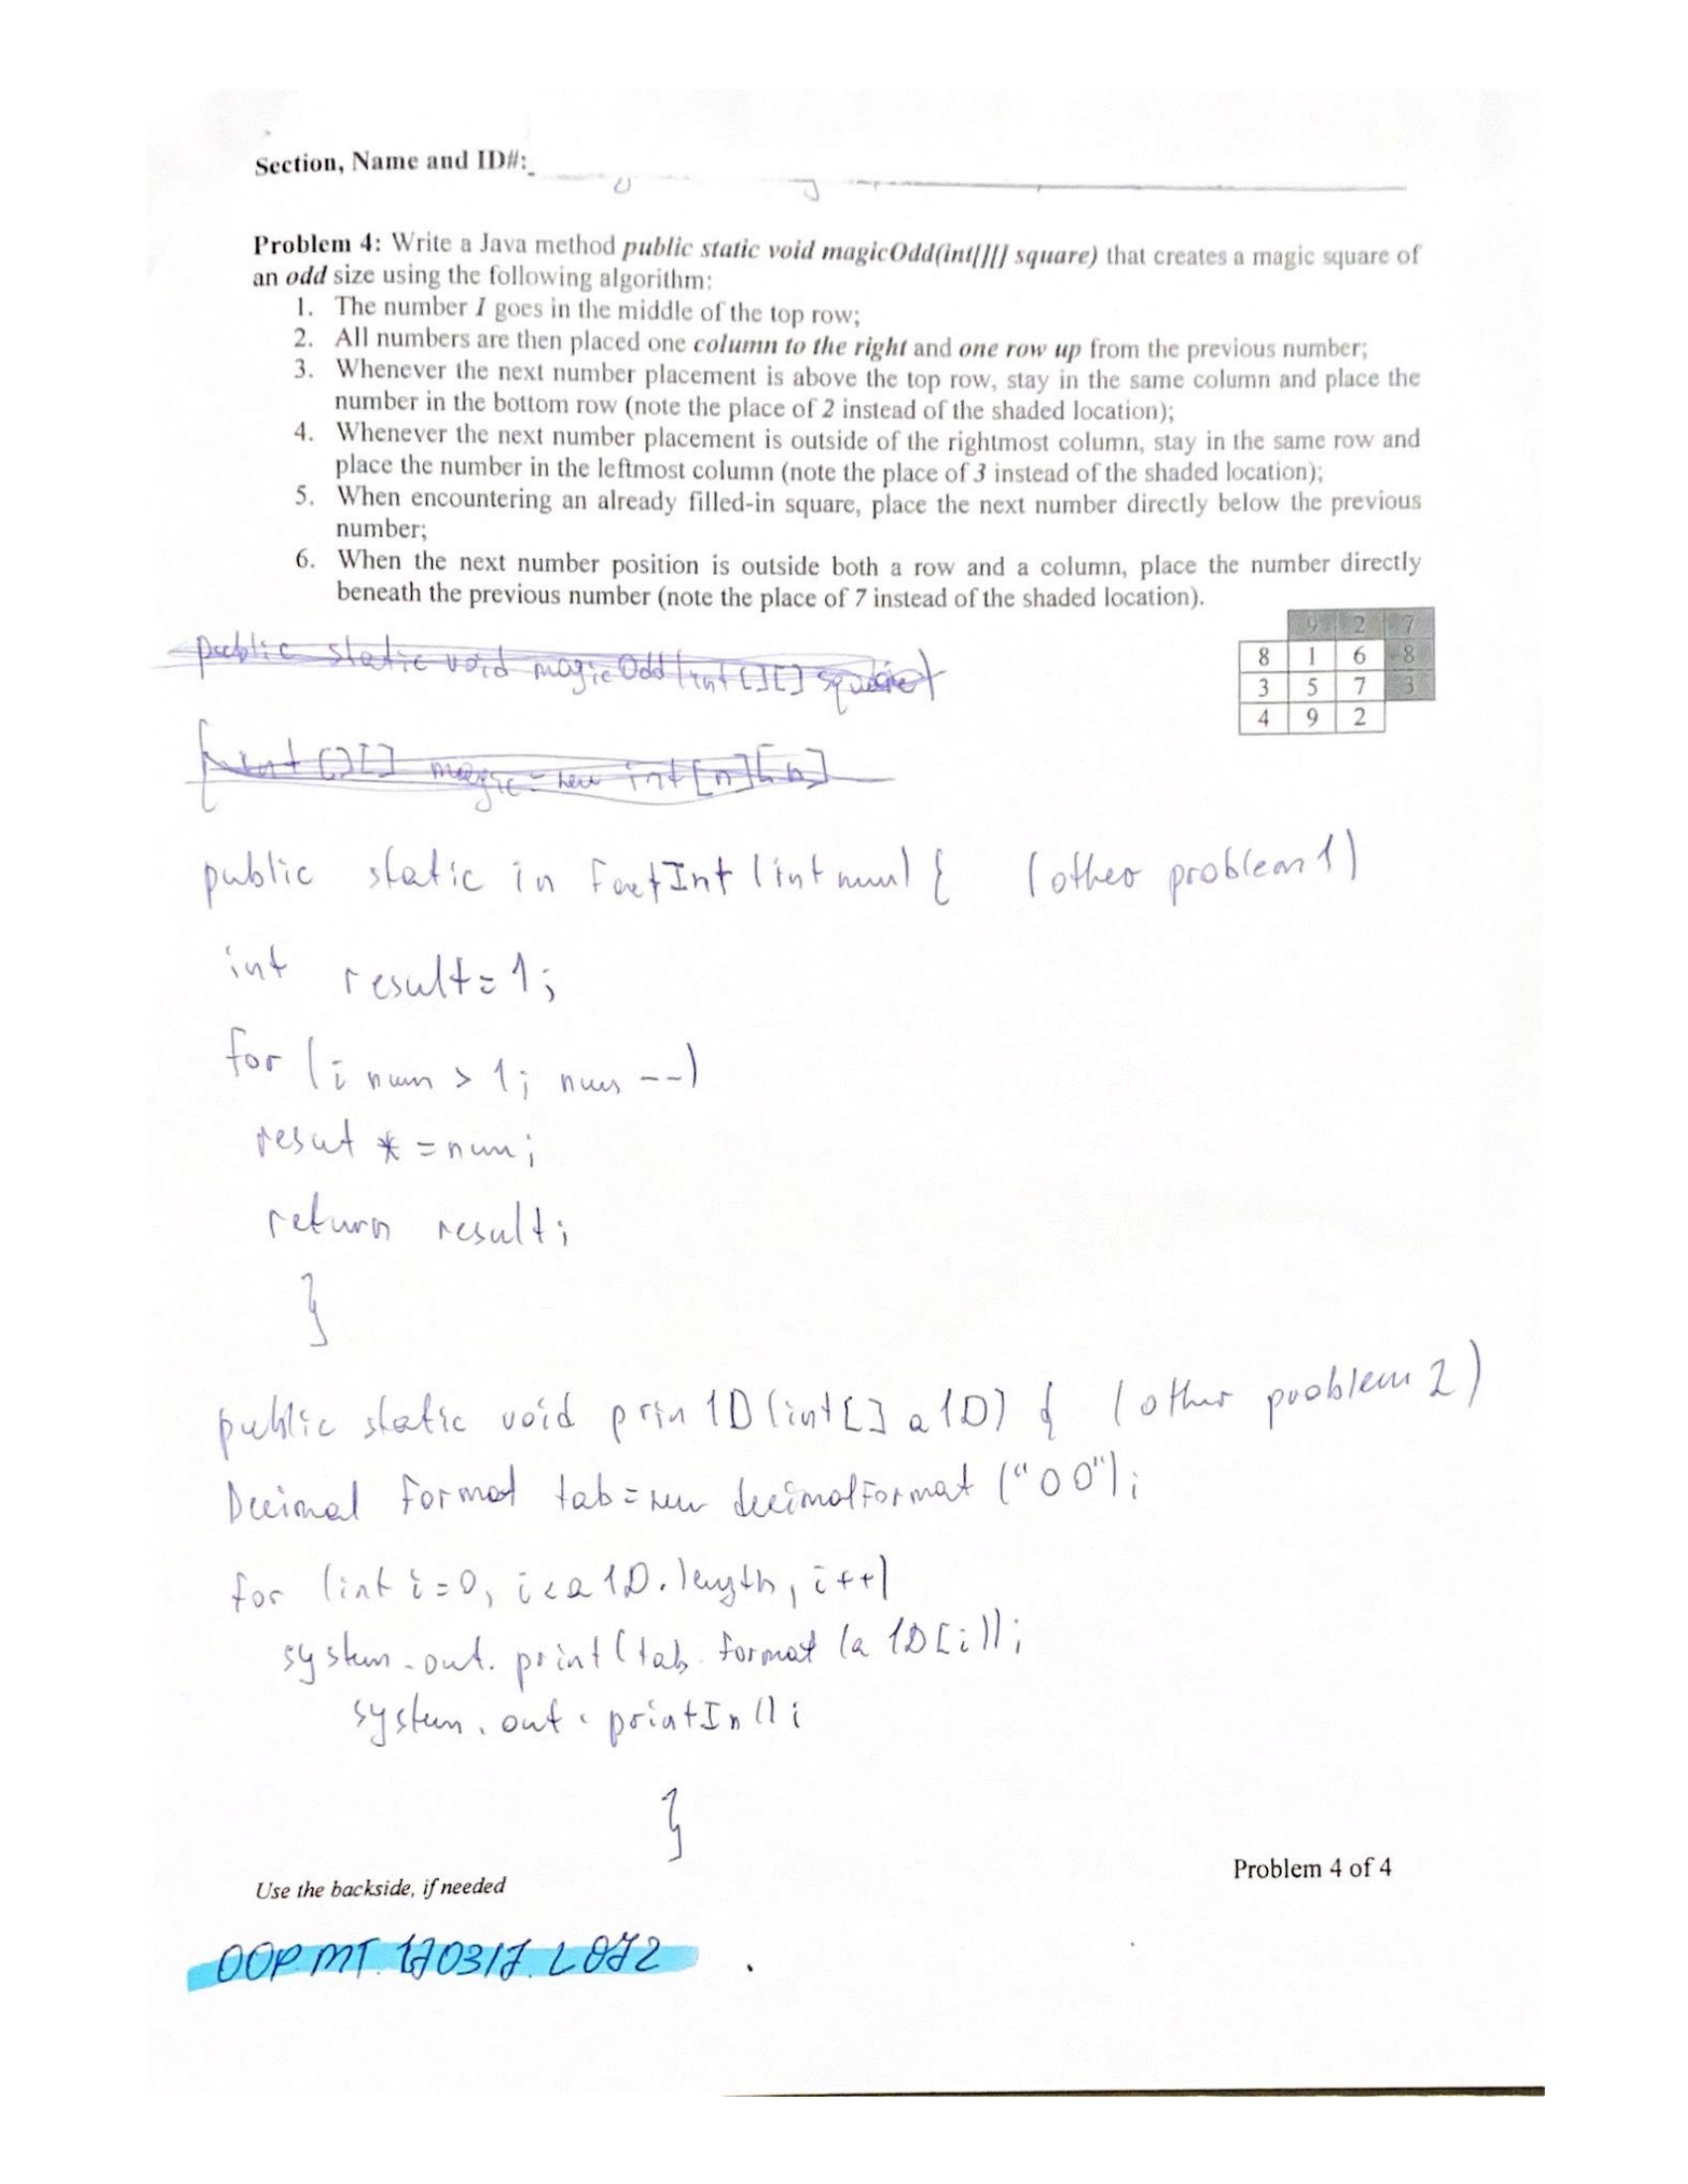 Section, Name and ID#:
Problem 4: Write a Java method public static void magicOdd(int[][] square) that creates a magic square of
an odd size using the following algorithm:
1. The number 1 goes in the middle of the top row;
2. All numbers are then placed one column to the right and one row up from the previous number;
3. Whenever the next number placement is above the top row, stay in the same column and place the
number in the bottom row (note the place of 2 instead of the shaded location);
4. Whenever the next number placement is outside of the rightmost column, stay in the same row and
place the number in the leftmost column (note the place of 3 instead of the shaded location);
5. When encountering an already filled-in square, place the next number directly below the previous
number;
6. When the next number position is outside both a row and a column, place the number directly
beneath the previous number (note the place of 7 instead of the shaded location).
9 2 7
8 1 6 8
3 5 7 3
4 9 2
public static void magicOdd(int[][] square)
{ int [][] magic = new int[n][n]
public static in FactInt (int num) { (other problem 1)
int result = 1;
for (; num > 1; num --)
resut * = num;
return result;
}
public static void prin 1D (int[] a1D) { (other problem 2)
Decimal Format tab = new decimalFormat ("00");
for (int i=0, i<a1D.length, i++)
system.out.print(tab.format(a1D[i]);
system.out.printIn();
}
Use the backside, if needed
Problem 4 of 4
OOP.MT.170317.L072